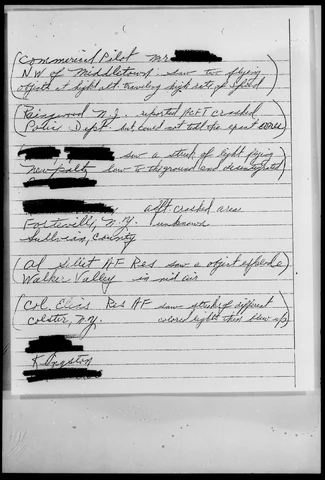 (Commercial Pilot Mr.
N.W. of Middletown. saw two flying
objects at hight alt. traveling high rate of speed)
(Ringwood N.J. reported ACFT crashed
Police Dept. but could not tell the exact area)
saw a streak of light flying
New Paltz low to the ground and disintegrated)
acft crashed area
N.Y. unknown
Sullivan, County
(Al AF Res saw a object explode
Walker Valley in mid air)
(Col. Res AF saw streaks of different
N.Y. colored lights then blew up)
Kingston